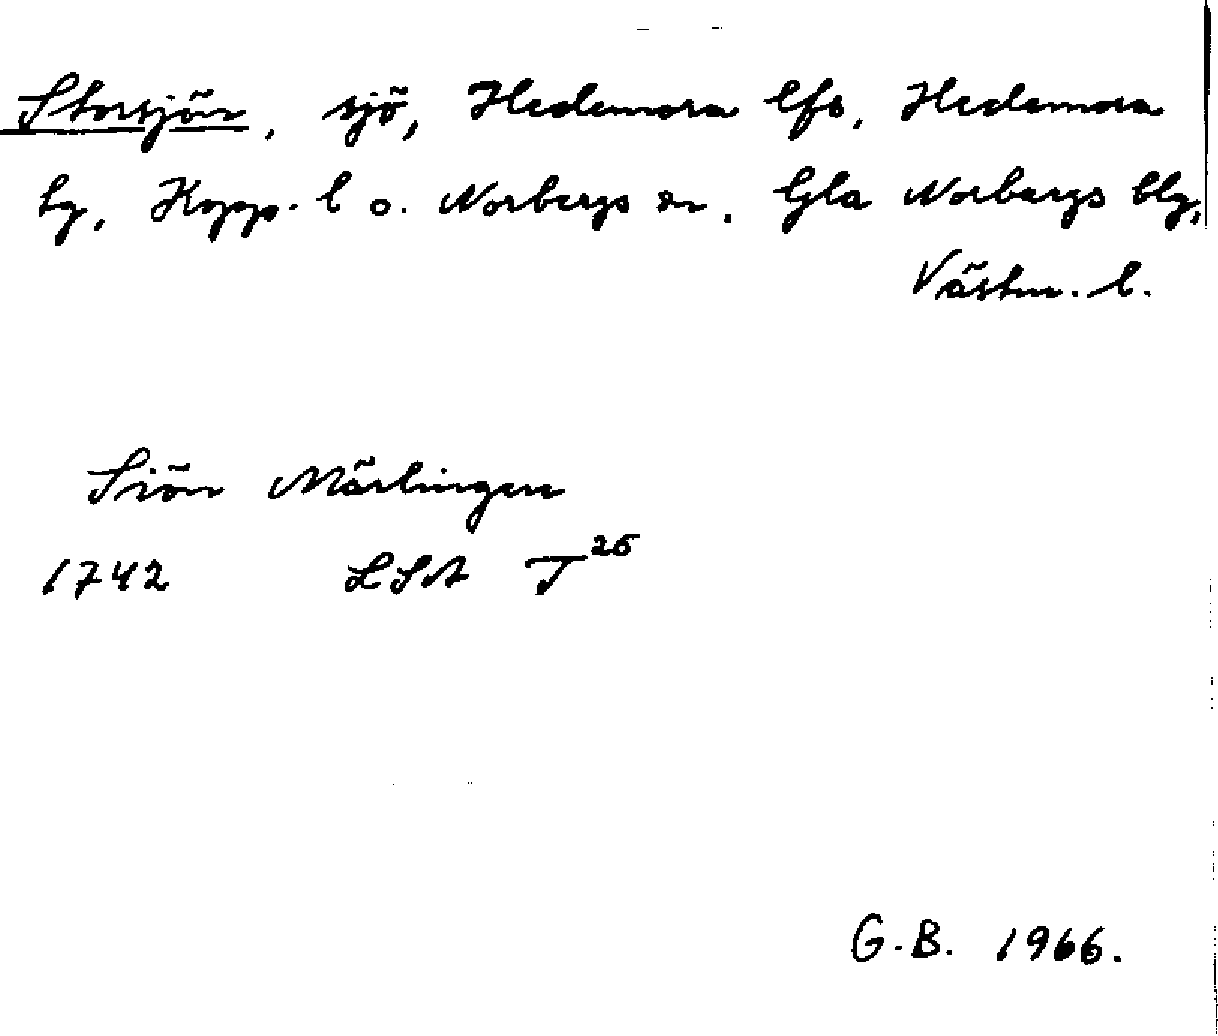 Storsjön, sjö, Hedemora lfs, Hedemora
tg, Kopp. l o. Norbergs sn. Gla Norbergs blg,
Västm. l.
Siön Märlingen
1742 LSA T26
G.B. 1966.